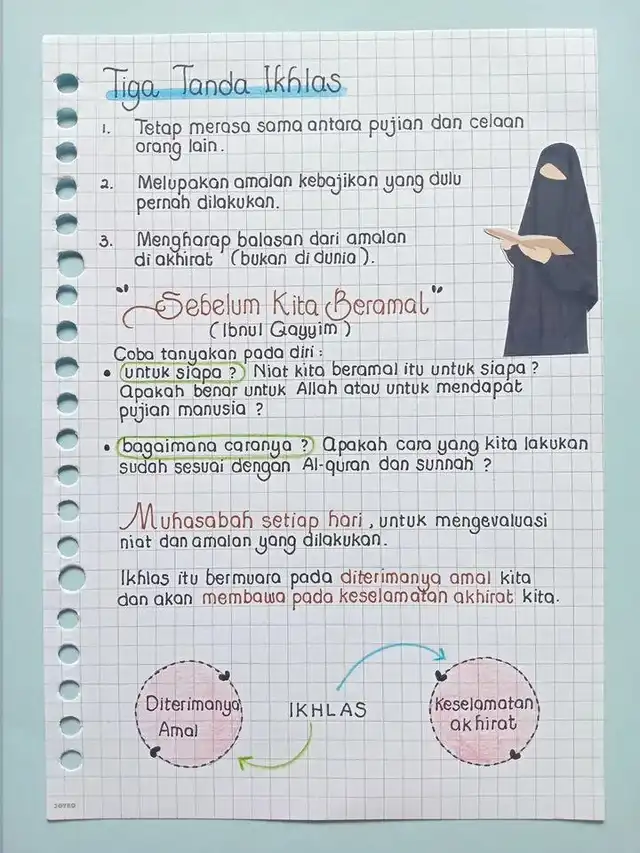 Tiga Tanda Ikhlas
1. Tetap merasa sama antara pujian dan celaan
orang lain.
2. Melupakan amalan kebajikan yang dulu
pernah dilakukan.
3. Mengharap balasan dari amalan
di akhirat (bukan di dunia).
"Sebelum Kita Beramal"
(Ibnul Qayyim)
Coba tanyakan pada diri :
• untuk siapa ? Niat kita beramal itu untuk siapa ?
Apakah benar untuk Allah atau untuk mendapat
pujian manusia ?
• bagaimana caranya ? Apakah cara yang kita lakukan
sudah sesuai dengan Al-quran dan sunnah ?
Muhasabah setiap hari, untuk mengevaluasi
niat dan amalan yang dilakukan.
Ikhlas itu bermuara pada diterimanya amal kita
dan akan membawa pada keselamatan akhirat kita.
Diterimanya
Amal
IKHLAS
Keselamatan
akhirat
JOYKO